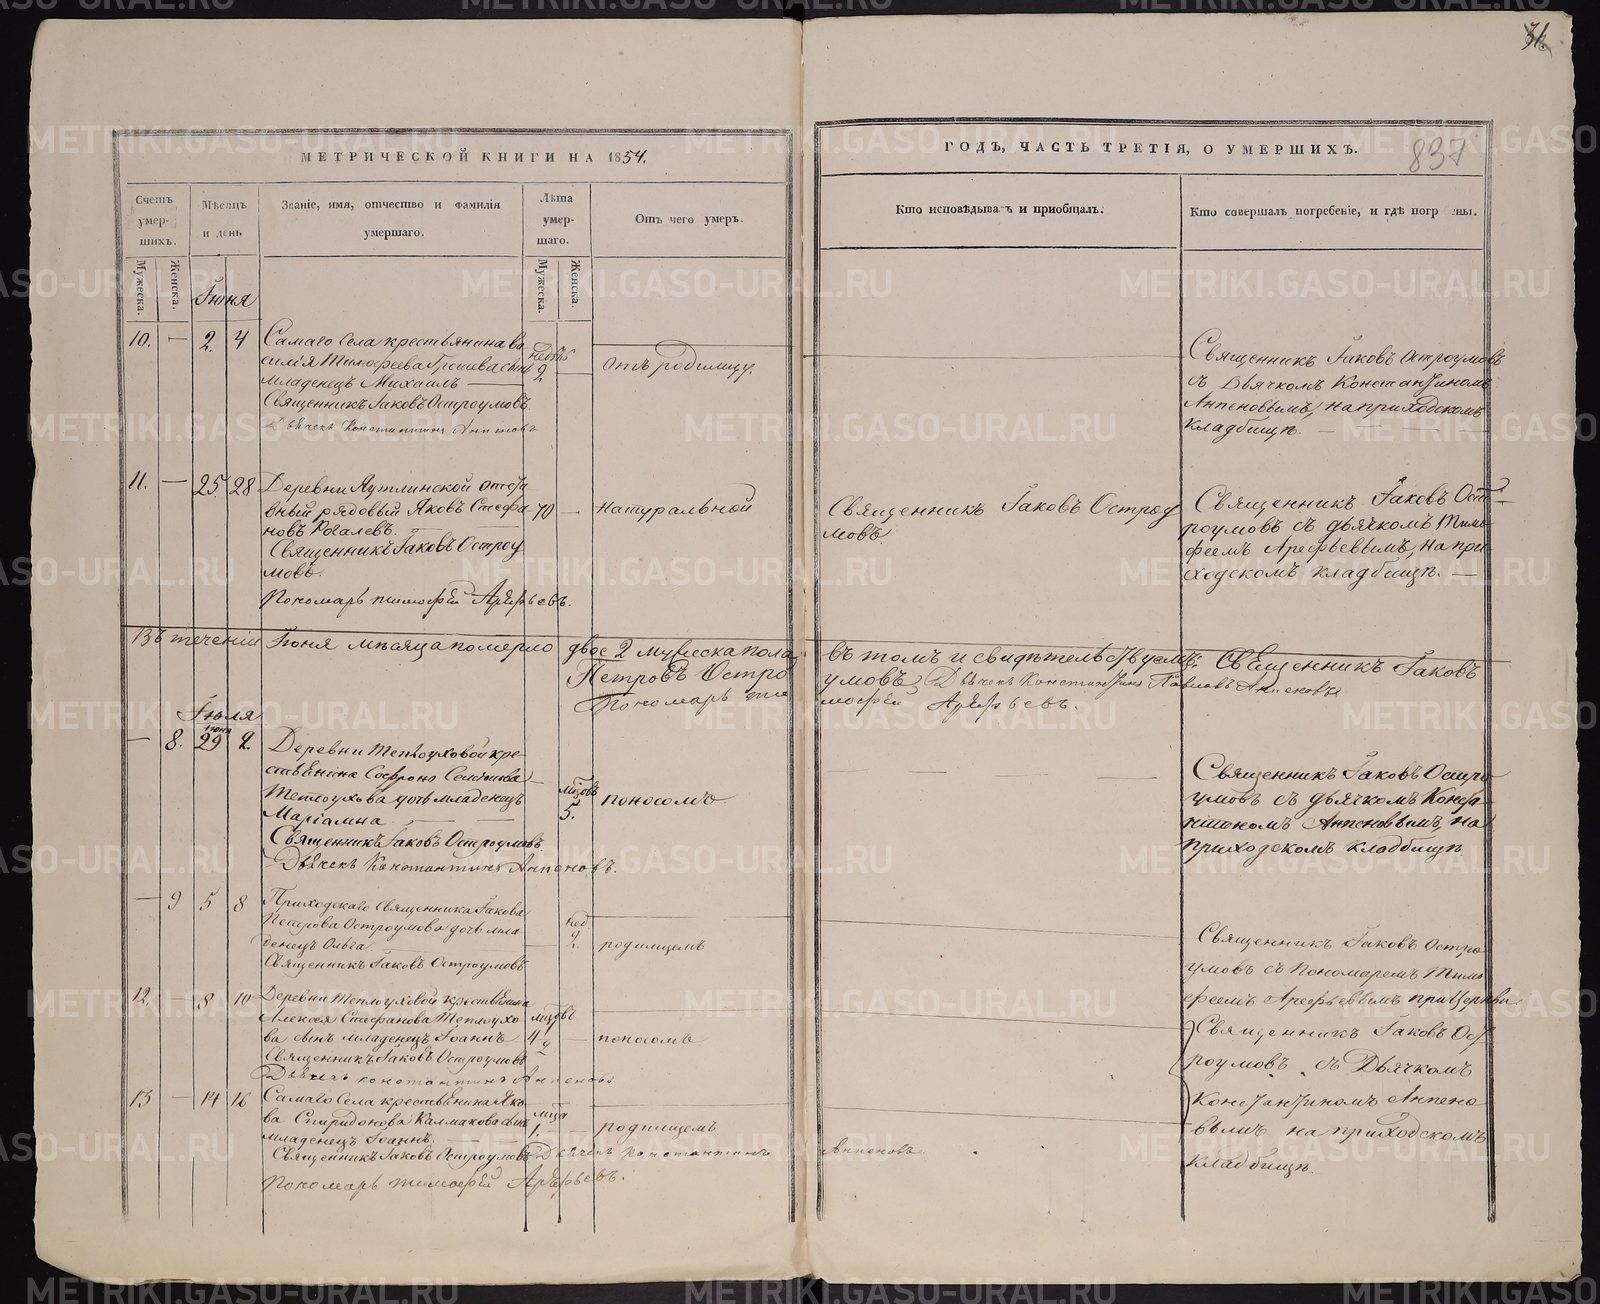 31.
837
МЕТРИЧЕСКОЙ КНИГИ НА 1854.
ГОДЪ, ЧАСТЬ ТРЕТІЯ, О УМЕРШИХЪ.
Счетъ умер- шихъ.
Мѣсяцъ и день
Званіе, имя, отчество и фамилія умершаго.
Лѣта умер- шаго.
Отъ чего умеръ.
Кто исповѣдывалъ и пріобщалъ.
Кто совершалъ погребеніе, и гдѣ погребены.
Мужеска.
Женска.
Мужеска.
Женска.
Іюня
10. — 2. 4
Самаго Села крестьянина Ва
силія Тимофеева сынъ
младенецъ Михаилъ
Священникъ Іаковъ Остроумовъ
Дьячекъ Константинъ Анпеновъ
2
отъ родимцу.
Священникъ Іаковъ Остроумовъ
съ Дьячкомъ Константиномъ
Анпеновымъ, на приходскомъ
кладбищѣ.
11. — 25 28
Деревни отста
вный рядовый Яковъ Стефа
новъ Рогалевъ.
Священникъ Іаковъ Остроу
мовъ.
Пономарь Тимофей Арефьевъ.
70 —
натуральной
Священникъ Іаковъ Остроу
мовъ
Священникъ Іаковъ Ост
роумовъ съ дьячкомъ Тимо
феемъ Арефьевымъ, на при
ходскомъ кладбищѣ. —
Въ теченіи Іюня мѣсяца померло двое 2 мужеска пола
въ томъ и свидѣтельствуемъ: Священникъ Іаковъ
Петровъ Остро
умовъ, Дьячекъ Константинъ Павловъ Анпеновъ
Пономарь Ти
мофей Арефьевъ.
Іюля
— 8. Іюня 29 2.
Деревни Теплоуховой кре
стьянина Софрона Семенова
Теплоухова дочь младенецъ
Маріамна
Священникъ Іаковъ Остроумовъ
Дьячекъ Константинъ Анпеновъ.
5.
поносомъ
Священникъ Іаковъ Остро
умовъ съ дьячкомъ Конста
нтиномъ Анпеновымъ, на
приходскомъ кладбищѣ.
— 9 5 8
Приходскаго Священника Іакова
Петрова Остроумова дочь мла
денецъ Ольга
Священникъ Іаковъ Остроумовъ
нед 2.
родимцемъ
Священникъ Іаковъ Остро
умовъ съ Пономаремъ Тимо
феемъ Арефьевымъ при Церкви
12. — 8 10
Деревни Теплоуховой крестьянина
Алексея Стефанова Теплоухо
ва сынъ младенецъ Іоаннъ
Священникъ Іаковъ Остроумовъ
Дьячекъ Константинъ Анпеновъ
поносомъ
Священникъ Іаковъ Ост
роумовъ съ Дьячкомъ
Константиномъ Анпено
вымъ на приходскомъ
кладбищѣ.
13 — 14 16
Самаго Села крестьянина Яко
ва Спиридонова Калмакова сынъ
младенецъ Іоаннъ.
Священникъ Іаковъ Остроумовъ Дьячекъ Константинъ Анпеновъ.
Пономарь Тимофей Арефьевъ.
мца 1
родимцемъ
METRIKI.GASO-URAL.RU